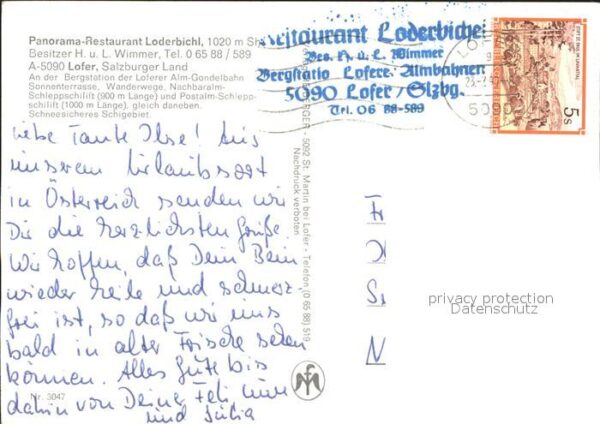 Panorama-Restaurant Loderbichl, 1020 m
Besitzer H. u. L. Wimmer, Tel. 0 65 88 / 589
A-5090 Lofer, Salzburger Land
An der Bergstation der Loferer Alm-Gondelbahn
Sonnenterrasse, Wanderwege, Nachbaralm-
Schlepplift (900 m Länge) und Postalm-Schlepp-
schilift (1000 m Länge), gleich daneben.
Schneesicheres Schigebiet.
Restaurant Loderbichel
Bes. H. u. L. Wimmer
Bergstatio Lofere. Almbahnen
5090 Lofer / Slzbg.
Tel. 06 88-589
5090
5 S
Liebe Tante Ilse! Aus
unserem Urlaubsort
in Österreich senden wir
Dir die herzlichsten Grüße.
Wir hoffen, daß Dein Bein
wieder heile und schmerz-
frei ist, so daß wir uns
bald in alter Frische sehen
können. Alles Gute bis
dahin von Deiner
und Julia
5092 St. Martin bei Lofer - Telefon (0 65 88) 519
Nachdruck verboten
Nr. 3047
privacy protection
Datenschutz